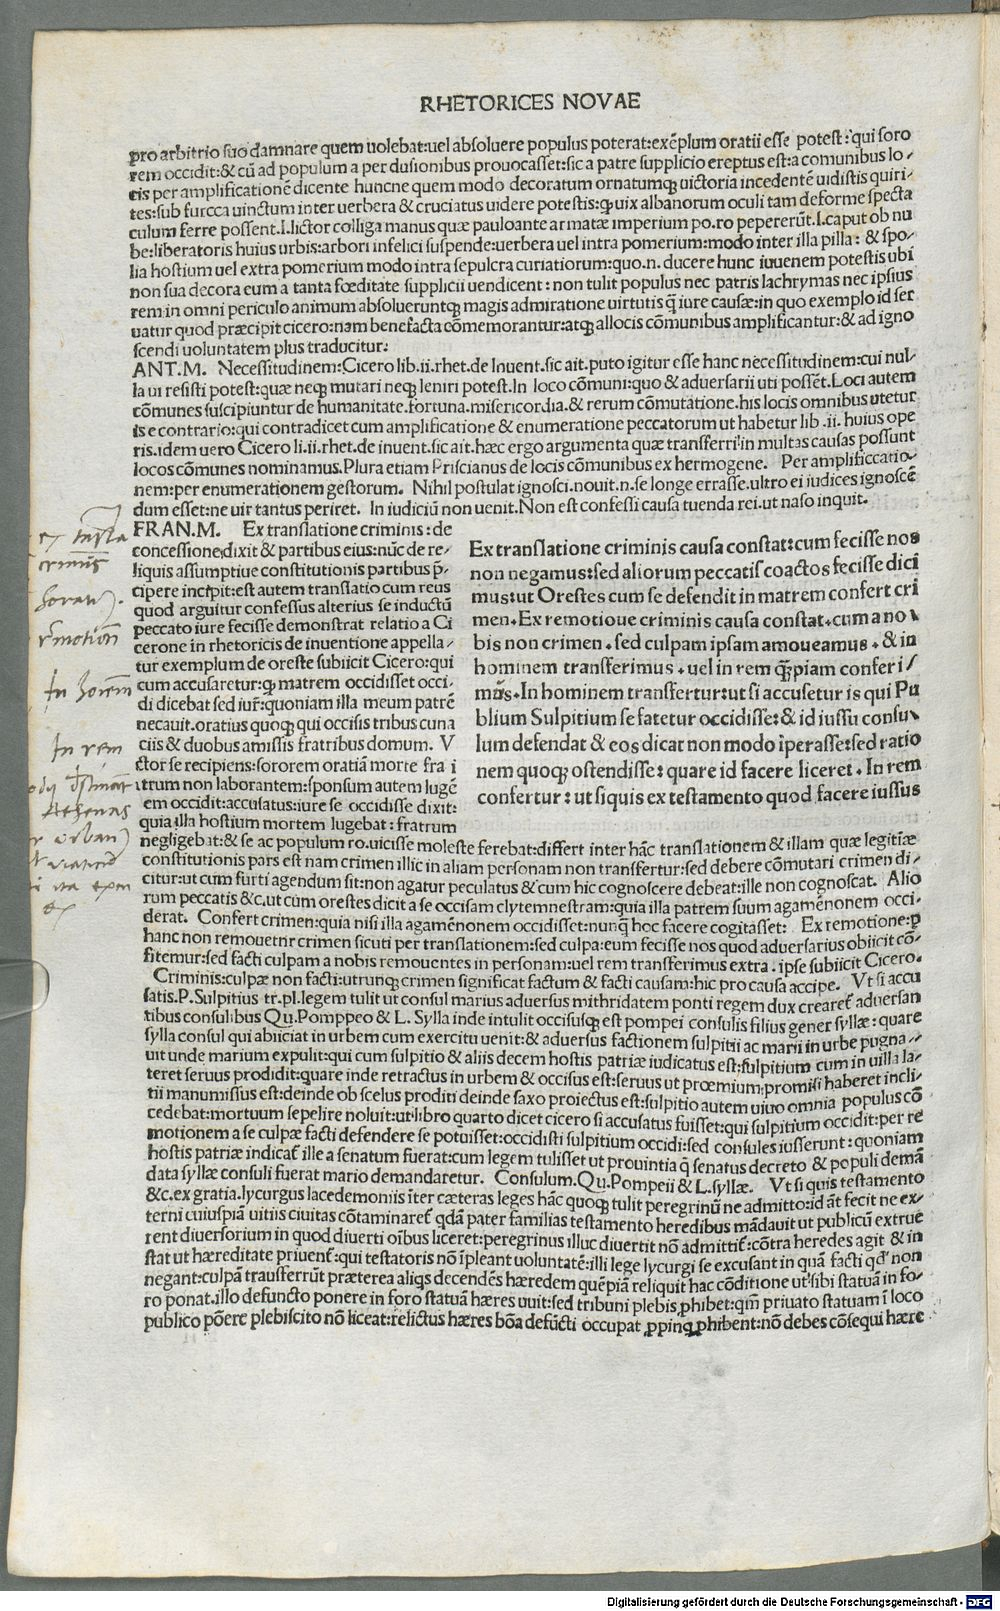 RHETORICES NOVAE
pro arbitrio suo damnare quem uolebat:uel absoluere populus poterat:exẽplum oratii esse potest:qui soro
rem occidit:& cũ ad populum a per dusionibus prouocasset:sic a patre supplicio ereptus est:a comunibus lo-
cis per amplificationẽ dicente huncne quem modo decoratum ornatumqꝫ uictoria incedentẽ uidistis quiri-
tes:sub furcca uinctum inter uerbera & cruciatus uidere potestis:qꝫ uix albanorum oculi tam deforme specta
culum ferre possent.I.lictor colliga manus quæ pauloante armatæ imperium po.ro pepererũt.I.caput ob nu
be:liberatoris huius urbis:arbori infelici suspende:uerbera uel intra pomerium:modo inter illa pilla: & spo-
lia hostium uel extra pomerium modo intra sepulcra curiatiorum:quo.n. ducere hunc iuuenem potestis ubi
non sua decora eum a tanta fœditate supplicii uendicent: non tulit populus nec patris lachrymas nec ipsius
rem:in omni periculo animum absolueruntqꝫ magis admiratione uirtutis q̃ iure causæ:in quo exemplo id ser
uatur quod præcipit cicero:nam benefacta cõmemorantur:atqꝫ allocis cõmunibus amplificantur:& ad igno
scendi uoluntatem plus traducitur:
ANT.M. Necessitudinem:Cicero lib.ii.rhet.de Inuent.sic ait.puto igitur esse hanc necessitudinem:cui nul-
la ui resisti potest:quæ neqꝫ mutari neqꝫ leniri potest.In loco cõmuni:quo & aduersarii uti possẽt.Loci autem
cõmunes suscipiuntur de humanitate.fortuna.misericordia.& rerum cõmutatione.his locis omnibus utetur
is e contrario:qui contradicet cum amplificatione & enumeratione peccatorum ut habetur lib.ii.huius ope
ris.idem uero Cicero li.ii.rhet.de inuent.sic ait.hæc ergo argumenta quæ transferri in multas causas possunt
locos cõmunes nominamus.Plura etiam Priscianus de locis cõmunibus ex hermogene. Per amplificcatio-
nem:per enumerationem gestorum. Nihil postulat ignosci.nouit.n.se longe errasse.ultro ei iudices ignoscẽ
dum esset:ne uir tantus periret. In iudiciũ non uenit.Non est confessi causa tuenda rei.ut naso inquit.
FRAN.M. Ex translatione criminis:de
concessione:dixit & partibus eius:nũc de re-
liquis assumptiue constitutionis partibus p̃-
cipere incipit:est autem translatio cum reus
quod arguitur confessus alterius se inductũ
peccato iure fecisse demonstrat relatio a Ci
cerone in rhetoricis de inuentione appella-
tur exemplum de oreste subiicit Cicero:qui
cum accusaretur:qꝫ matrem occidisset occi-
di dicebat sed iur̃:quoniam illa meum patrẽ
necauit.oratius quoqꝫ qui occisis tribus cuna
ciis & duobus amissis fratribus domum. V
ctor se recipiens:sororem oratiã morte fra i
trum non laborantem:sponsum autem lugẽ
em occidit:accusatus:iure se occidisse dixit:
quia illa hostium mortem lugebat:fratrum
Ex translatione criminis causa constat:cum fecisse nos
non negamus:sed aliorum peccatis coactos fecisse dici
mus:ut Orestes cum se defendit in matrem confert cri
men.Ex remotioue criminis causa constat.cum a no
bis non crimen.sed culpam ipsam amoueamus.& in
hominem transferimus.uel in rem q̃piam conferi-
mus.In hominem transfertur:ut si accusetur is qui Pu
blium Sulpitium se fatetur occidisse:& id iussu consu
lum defendat & eos dicat non modo ĩperasse:sed ratio
nem quoqꝫ ostendisse:quare id facere liceret.In rem
confertur:ut siquis ex testamento quod facere iussus
negligebat:& se ac populum ro.uicisse moleste ferebat:differt inter hãc translationem & illam quæ legitiæ
constitutionis pars est nam crimen illic in aliam personam non transfertur:sed debere cõmutari crimen di-
citur:ut cum furti agendum sit:non agatur peculatus & cum hic cognoscere debeat:ille non cognoscat. Alio
rum peccatis &c.ut cum orestes dicit a se occisam clytemnestram:quia illa patrem suum agamẽnonem occi-
derat. Confert crimen:quia nisi illa agamẽnonem occidisset:nunq̃ hoc facere cogitasset: Ex remotione:ꝑ
hanc non remouetnr crimen sicuti per translationem:sed culpa:eum fecisse nos quod aduersarius obiicit cõ-
fitemur:sed facti culpam a nobis remouentes in personam:uel rem transferimus extra.ipse subiicit Cicero.
Criminis:culpæ non facti:utrunqꝫ crimen significat factum & facti causam:hic pro causa accipe. Vt si accu
satis.P.Sulpitius tr.pl.legem tulit ut consul marius aduersus mithridatem ponti regem dux crearet̃ aduersan
tibus consulibus Qu.Pomppeo & L.Sylla inde intulit occisusqꝫ est pompei consulis filius gener syllæ:quare
sylla consul qui abiiciat in urbem cum exercitu uenit:& aduersus factionem sulpitii ac marii in urbe pugna-
uit unde marium expulit:qui cum sulpitio & aliis decem hostis patriæ iudicatus est:sulpitium cum in uilla la-
teret seruus prodidit:quare inde retractus in urbem & occisus est:seruus ut proemium:promisi haberet incli-
tii manumissus est:deinde ob scelus proditi deinde saxo proiectus est:sulpitio autem uiuo omnia populus cõ
cedebat:mortuum sepelire noluit:ut libro quarto dicet cicero si accusatus fuisset:qui sulpitium occidit:per re
motionem a se culpæ facti defendere se potuisset:occidisti sulpitium occidi:sed consules iusserunt:quoniam
hostis patriæ indicat̃ ille a senatum fuerat:cum legem tulisset ut prouintia q̃ senatus decreto & populi demã
data syllæ consuli fuerat mario demandaretur. Consulum.Qu.Pompeii & L.syllæ. Vt si quis testamento
&c.ex gratia.lycurgus lacedemoniis ĩter cæteras leges hãc quoqꝫ tulit peregrinũ ne admitto:id ãt fecit ne ex-
terni cuiuspiã uitiis ciuitas cõtaminaret̃ qdã pater familias testamento heredibus mãdauit ut publicũ extrue
rent diuersorium in quod diuerti oĩbus liceret:peregrinus illuc diuertit nõ admittit̃:cõtra heredes agit & in
stat ut hæreditate priuent̃:qui testatoris nõ ĩpleant uoluntatẽ:illi lege lycurgi se excusant in quã facti qd̃ non
negant:culpã trausferrũt præterea aliqs decendẽs hæredem quẽpiã reliquit hac cõditione ut sibi statuã in fo-
ro ponat.illo defuncto ponere in foro statuã hæres uuit:sed tribuni plebis ꝓhibet:qm̃ priuato statuam ĩ loco
publico põere plebiscito nõ liceat:relictus hæres bõa defũcti occupat ꝓpinqꝫ ꝓhibent:nõ debes cõsequi hære
In rem
Athenas
Digitalisierung gefördert durch die Deutsche Forschungsgemeinschaft - DFG